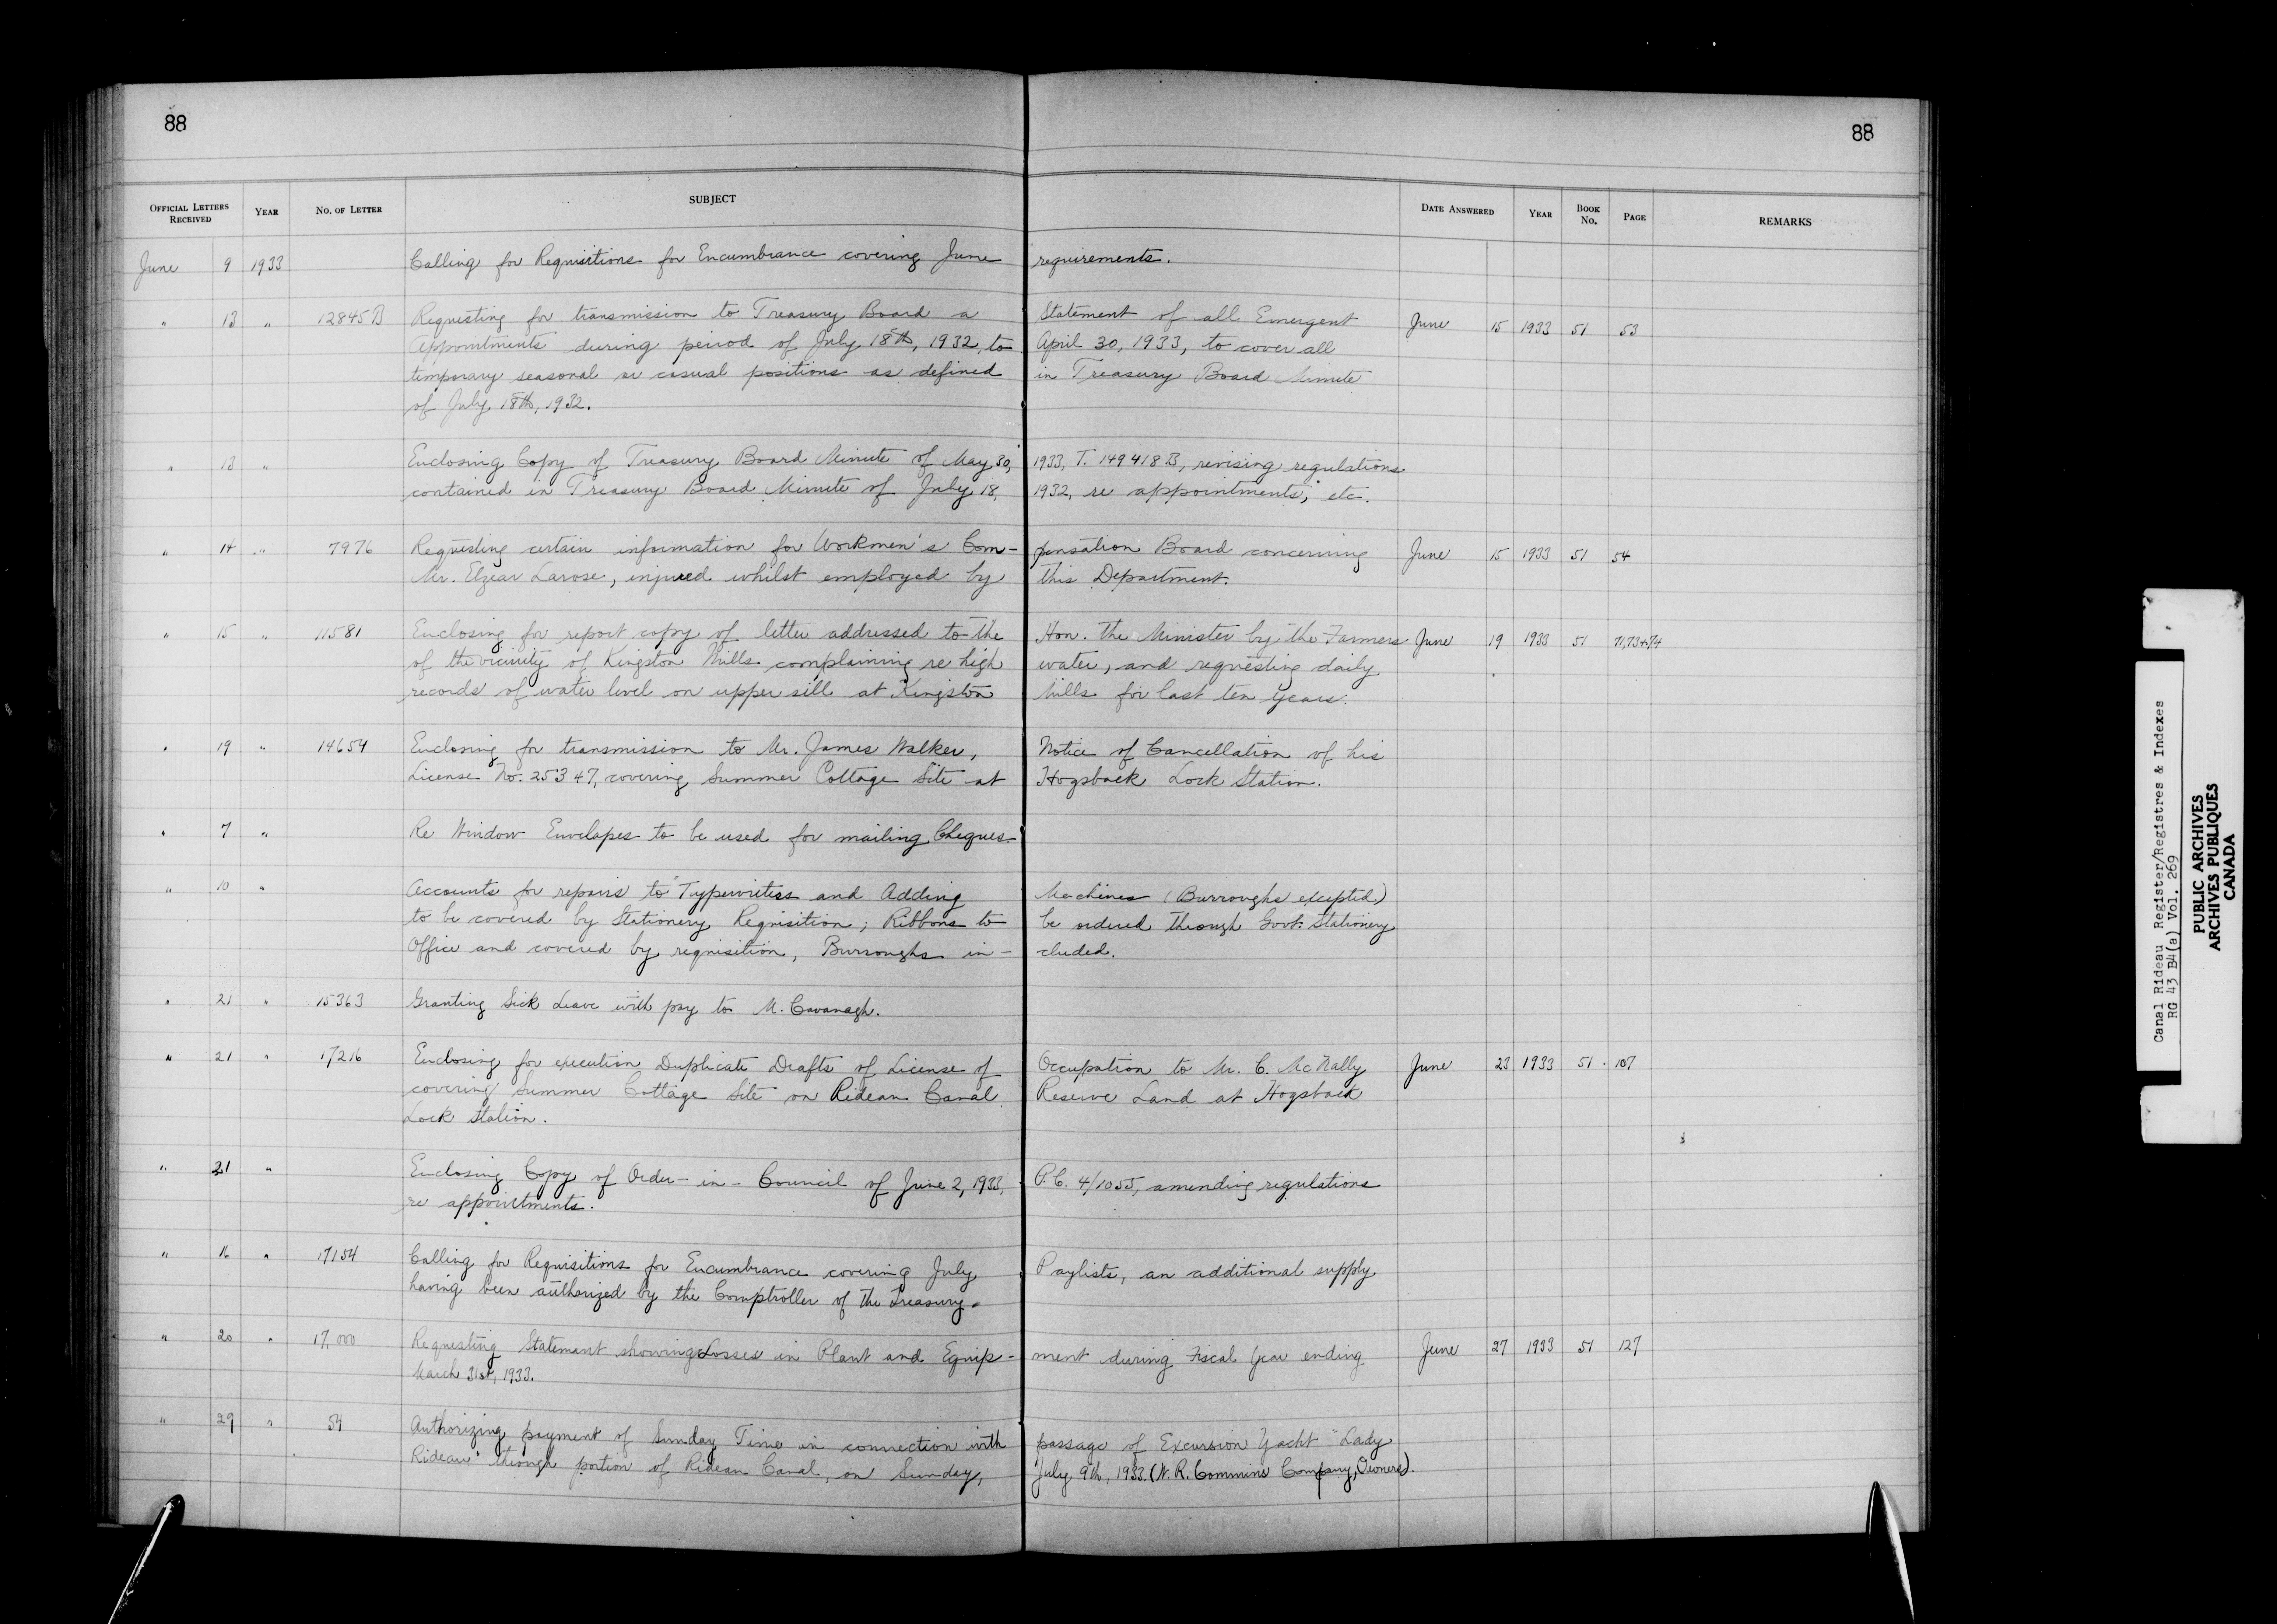 88
88
OFFICIAL LETTERS RECEIVED YEAR NO. OF LETTER SUBJECT DATE ANSWERED YEAR BOOK No. PAGE REMARKS
June 9 1933 Calling for Requisitions for Encumbrance covering June requirements.
" 13 " 12845 B Requesting for transmission to Treasury Board a Statement of all Emergent June 15 1933 51 53
appointments during period of July 18th, 1932, to April 30, 1933, to cover all
temporary seasonal or casual positions as defined in Treasury Board Minute
of July 18th, 1932.
" 13 " Enclosing Copy of Treasury Board Minute of May 30, 1933, T. 149418 B, revising regulations
contained in Treasury Board Minute of July 18, 1932, re appointments, etc.
" 14 " 7976 Requesting certain information for Workmen's Com- pensation Board concerning June 15 1933 51 54
Mr. Elzear Larose, injured whilst employed by this Department.
" 15 " 11581 Enclosing for report copy of letter addressed to the Hon. the Minister by the Farmers June 19 1933 51 71,73+74
of the vicinity of Kingston Mills complaining re high water, and requesting daily
records of water level on upper sill at Kingston Mills for last ten years.
" 19 " 14654 Enclosing for transmission to Mr. James Walker, Notice of Cancellation of his
License No. 25347, covering Summer Cottage Site at Hogsback Lock Station.
" 7 " Re Window Envelopes to be used for mailing Cheques.
" 10 " Accounts for repairs to Typewriters and Adding Machines (Burroughs excepted)
to be covered by Stationery Requisition; Ribbons to be ordered through Govt. Stationery
Office and covered by requisition, Burroughs in- cluded.
" 21 " 15363 Granting Sick Leave with pay to M. Cavanagh.
" 21 " 17216 Enclosing for execution Duplicate Drafts of License of Occupation to Mr. C. McNally June 23 1933 51 107
covering Summer Cottage Site on Rideau Canal Reserve Land at Hogsback
Lock Station.
" 21 " Enclosing Copy of Order-in-Council of June 2, 1933, P.C. 4/1055, amending regulations
re appointments.
" 16 " 17154 Calling for Requisitions for Encumbrance covering July Paylists, an additional supply
having been authorized by the Comptroller of the Treasury.
" 20 " 17,000 Requesting Statement showing Losses in Plant and Equip- ment during Fiscal Year ending June 27 1933 51 127
March 31st, 1933.
" 29 " 54 Authorizing payment of Sunday Time in connection with passage of Excursion Yacht "Lady
Rideau" through portion of Rideau Canal, on Sunday, July 9th, 1933. (W. R. Commins Company, Owners).
Canal Rideau Register/Registres & Indexes
RG 43 B4(a) Vol. 269
PUBLIC ARCHIVES
ARCHIVES PUBLIQUES
CANADA